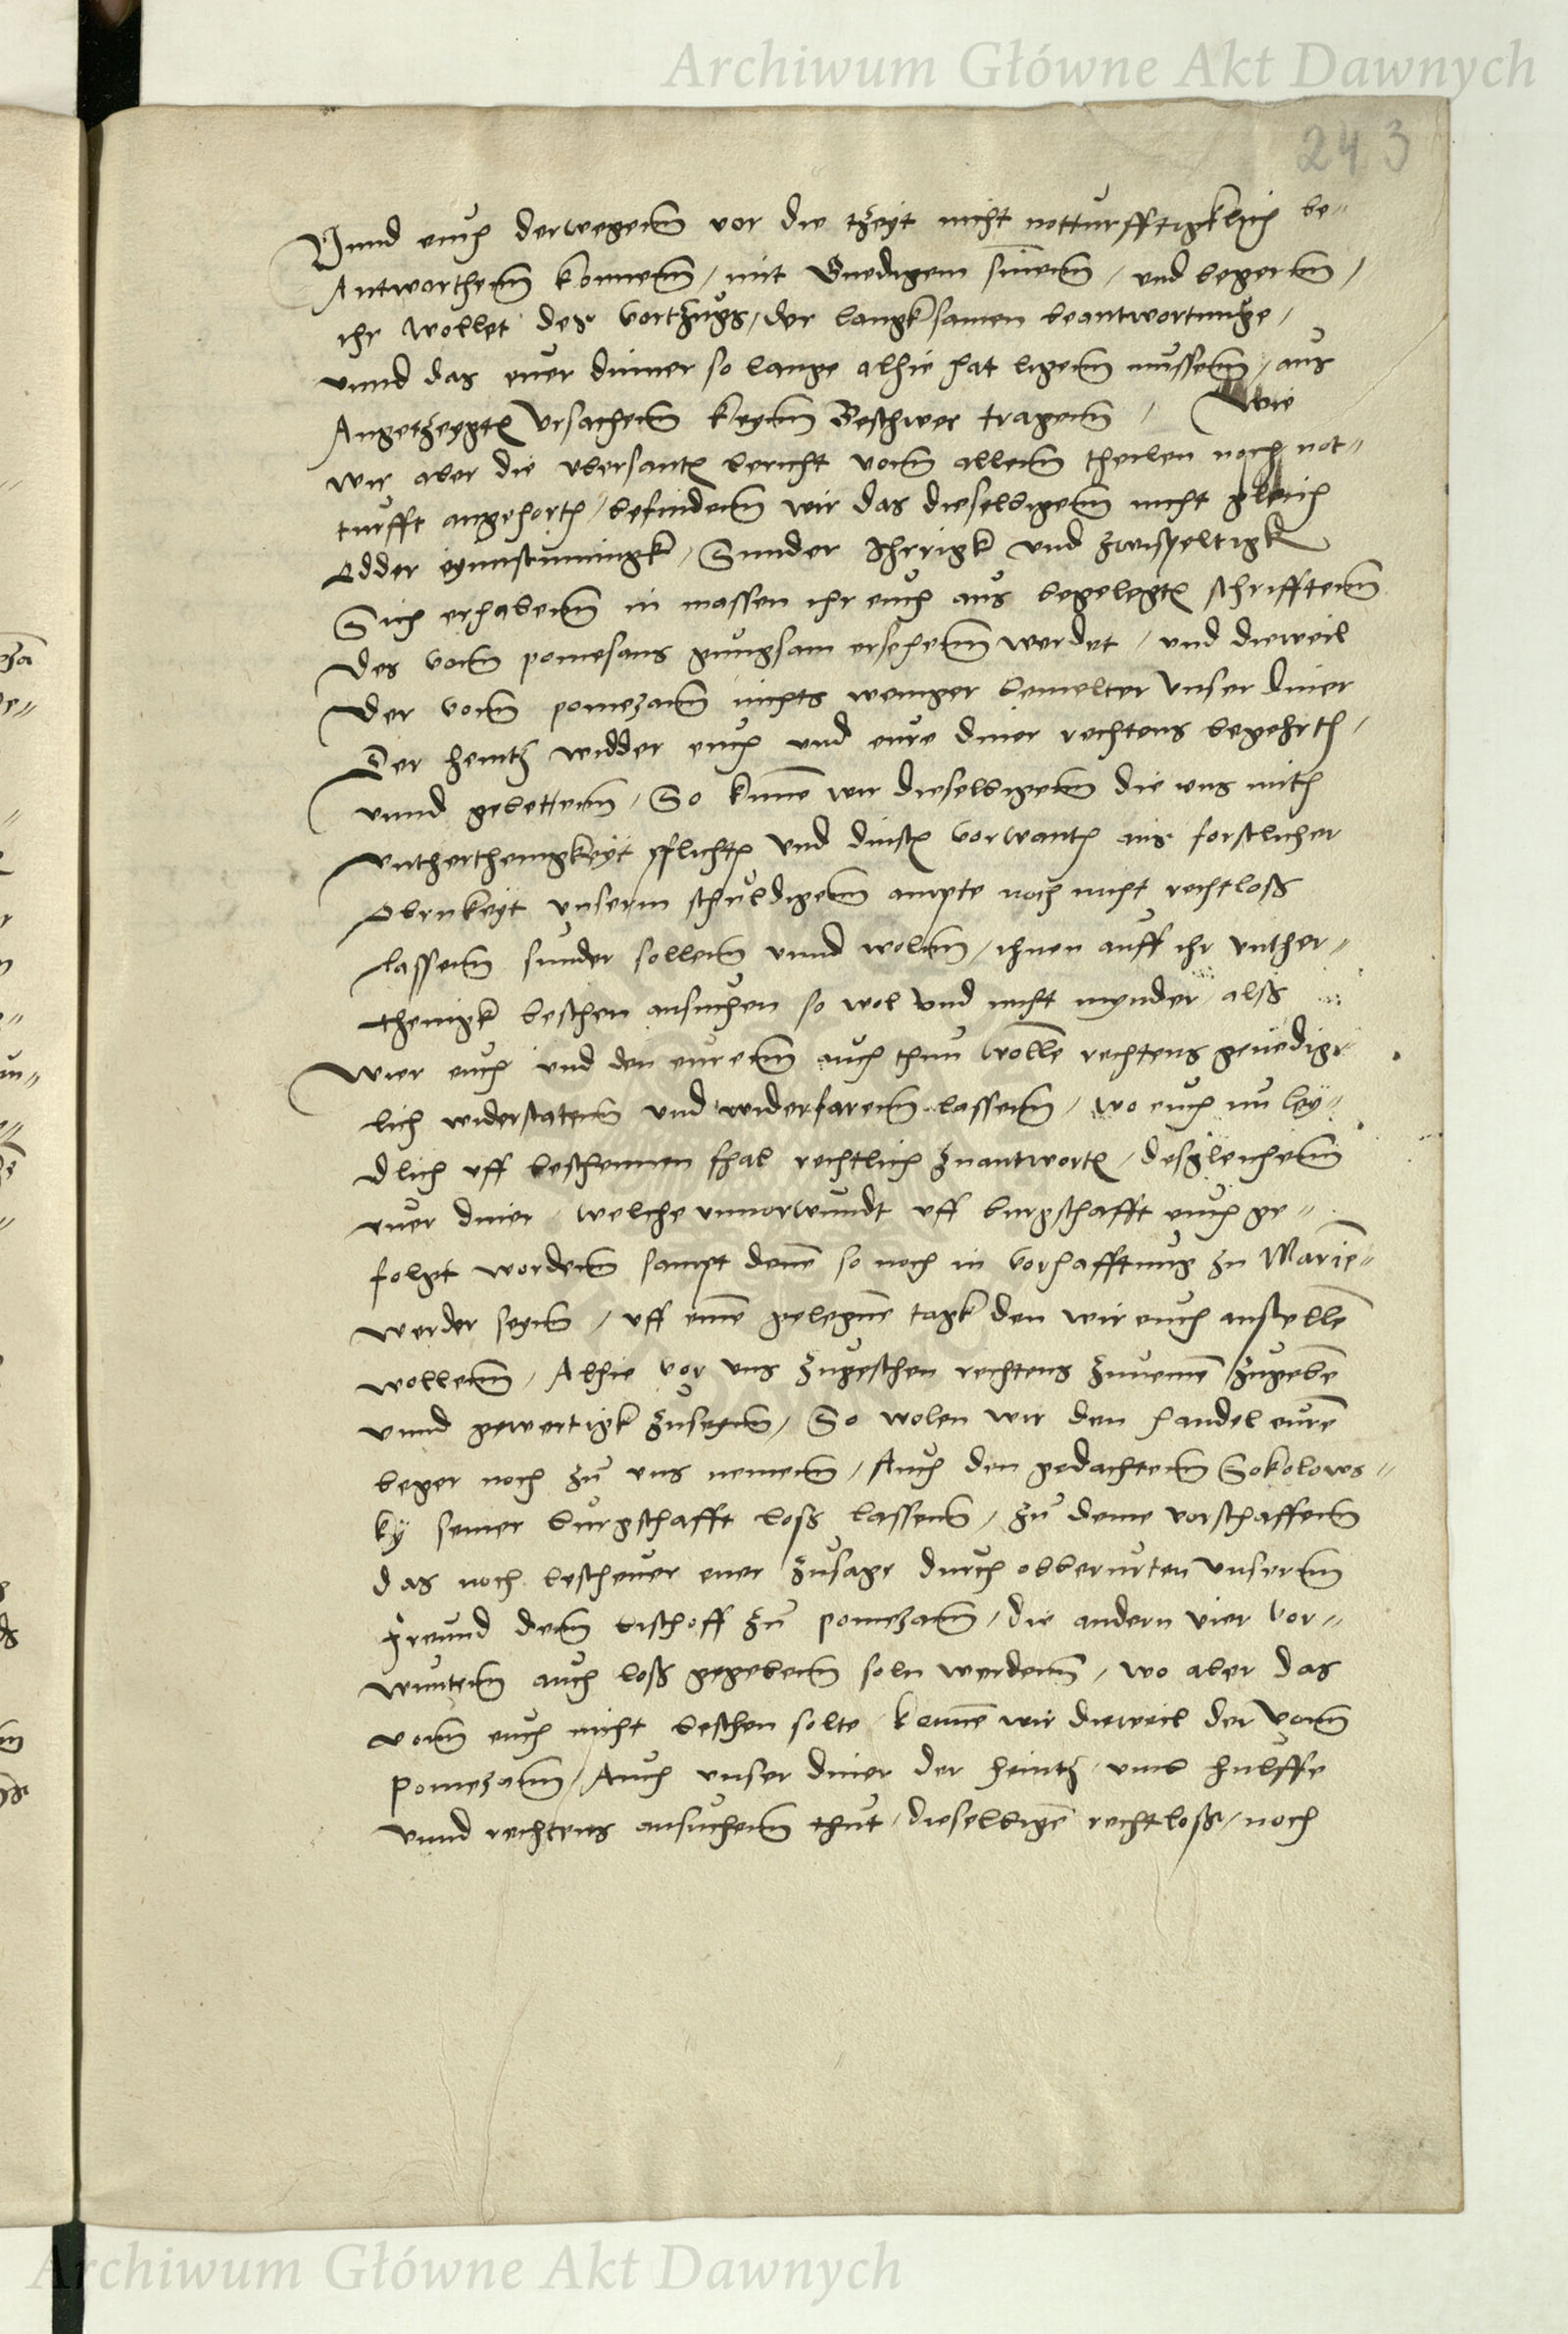 Archiwum Główne Akt Dawnych
243
Vnnd euch derwegenn vor die tzeyt nicht notturfftigklich be-
Antworthenn konnenn / mit Gnedigem sinnenn / und begernn /
ihr wollet des vortzugs / der langksamen beantwortunge /
vnnd das euer dinner so lange alhie hat ligenn mussenn / aus
Angetzeygten Vrsachenn keynn Beschwer tragenn / Wie
wir aber die vbersanten bericht vonn allenn theilen noch not-
turfft angehorth / befindenn wir das dieselbigenn nicht gleich
Adder eynnstimmigk / Sunder Ihrrigk vnd zwispeltigk
Sich erhabenn in massen ihr euch aus begelegten schrifftenn
des vonn pomesans gnugsam ersehenn werdet / und dieweil
Der vonn pomezann nichts weniger bemelter Vnser diner
Der heintz widder euch vnd eure diner rechtens begehrth /
vnnd gebettenn / So kunnen wir dieselbigenn die vns mith
vntherthenigkeyt pflichten vnd dinsten vorwanten aus forstlicher
Obrikeyt vnserm schuldigenn ampte noch nicht rechtloß
lassenn sunder sollenn vnnd wolenn / ihnen auff ihr vnther-
thenigk beschen ansuchen so wol vnd nicht mynder alß
Wier euch vnd den eurenn auch thun wollen rechtens genedig
lich widerstatenn vnd widerfarenn lassenn / wo euch nu ley-
dlich vff beschennen fhal rechtlich zuantworten / desgleichenn
euer diner / welche vnuorwundt vff burgschafft euch ge-
folgt wordenn sampt denen so noch in vorhafftung zu Marien-
werder seynn / vff einen gelegnen tagk den wir euch anstellen
wollenn / Alhie vor vns zugeschen rechtens zunemen / zugeben
vnnd gewertigk zuseynn / So wolen wir den handel euren
beger noch zu vns nemenn / Auch den gedachtenn Sokolows-
ky seiner burgschafft loss lassenn / zu deme vorschaffenn
das noch beschener euer zusage durch obberurten vnserenn
freund denn bischoff zu pomezann / die andern vier vor-
wuntenn auch loß gegebenn soln werdenn / wo aber das
vonn euch nicht beschen solte / konnen wir dieweil der vonn
Pomezann / Auch vnser diner der heintz / vmb hulffe
vnnd rechtens ansuchenn thut / dieselbigen rechtloß / noch
Archiwum Główne Akt Dawnych